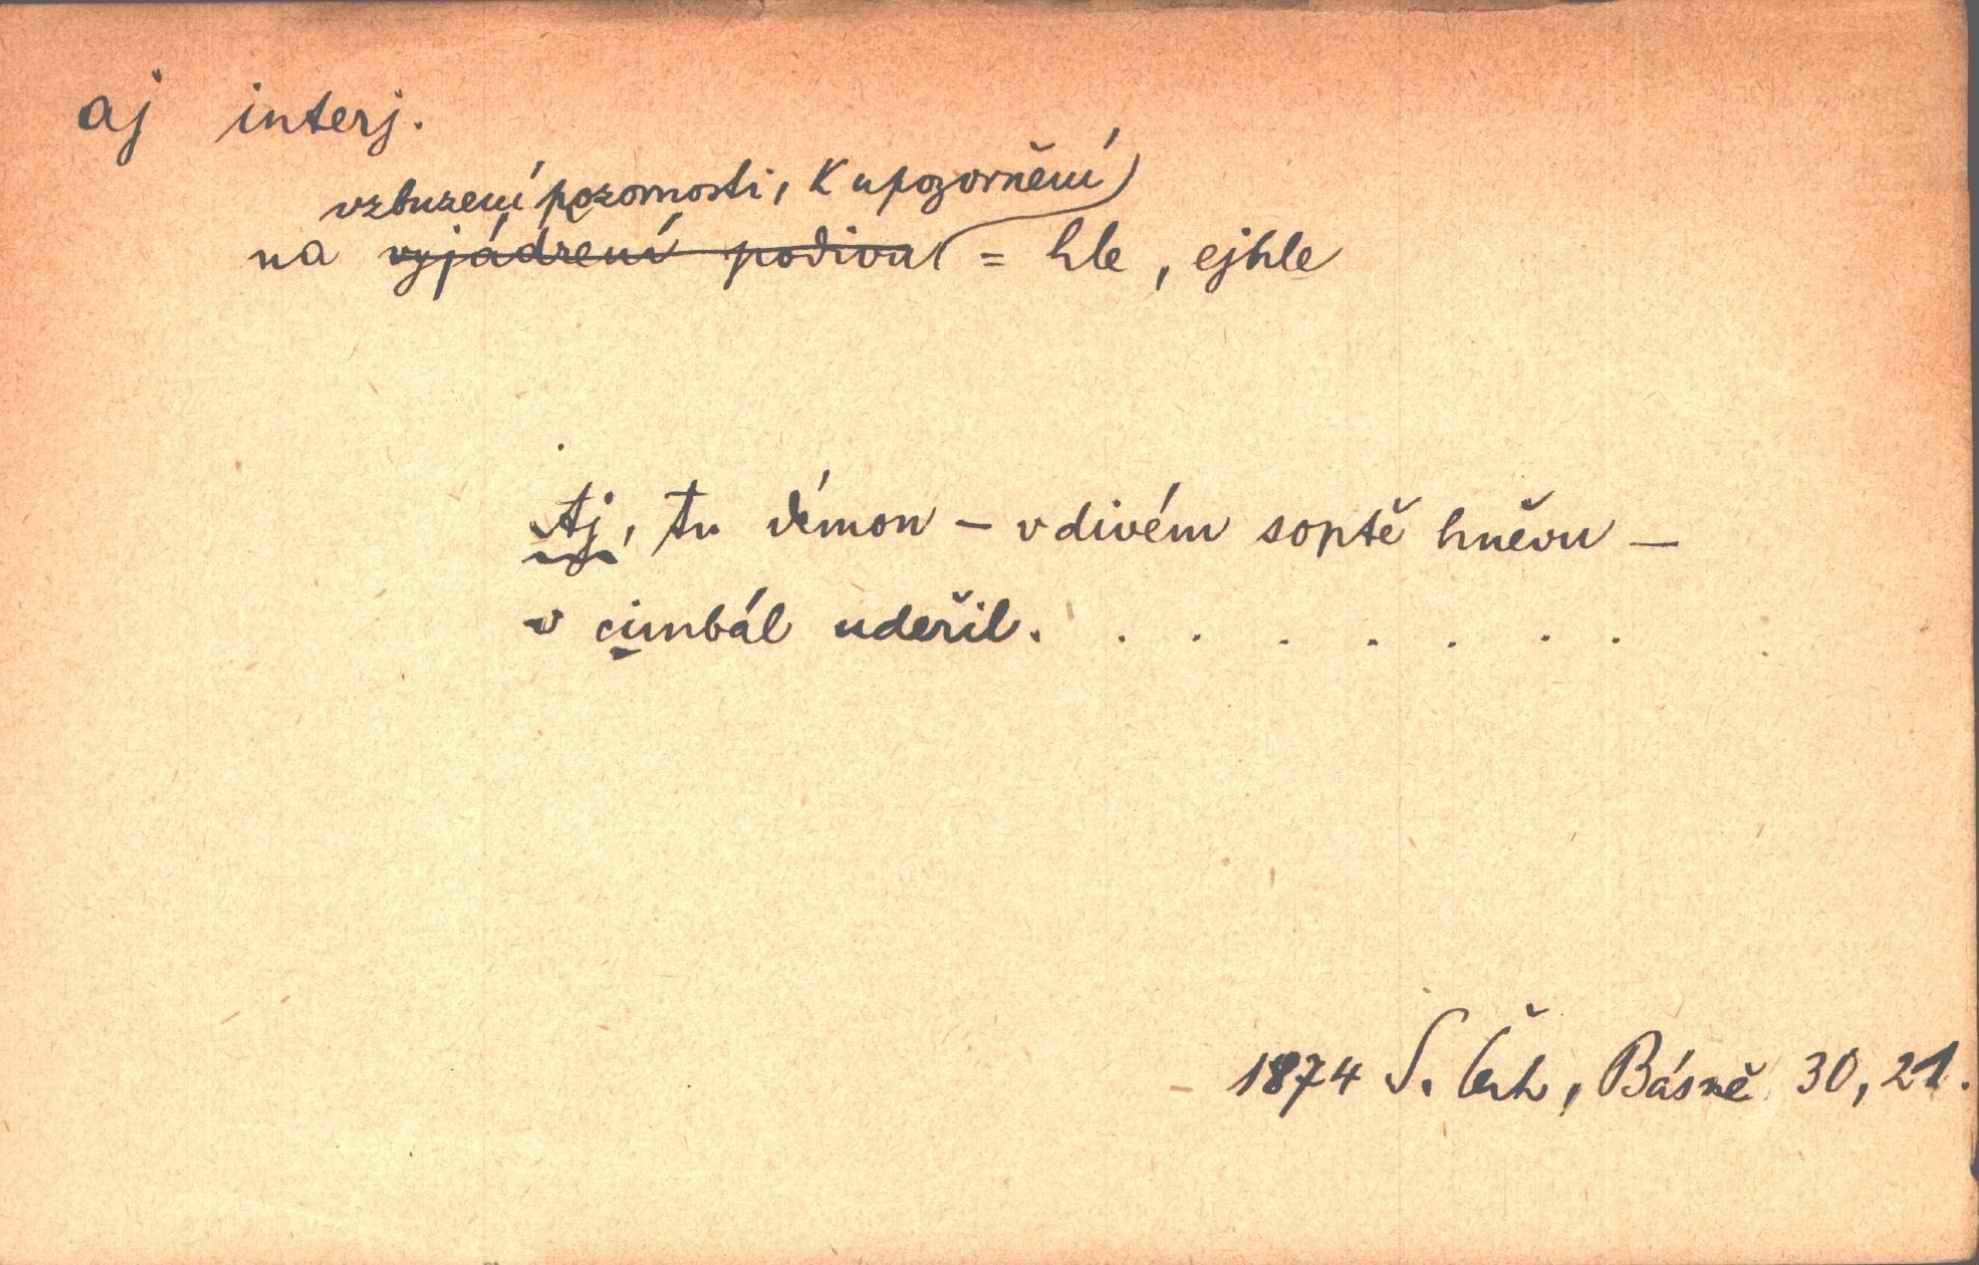 aj interj.
vzbuzení pozornosti, k upozornění
na vyjádření podivu = hle, ejhle
Aj, tu démon – v divém soptě hněvu –
v cimbál udeřil. . . . . . . .
1874 S. Čech, Básně 30, 21.